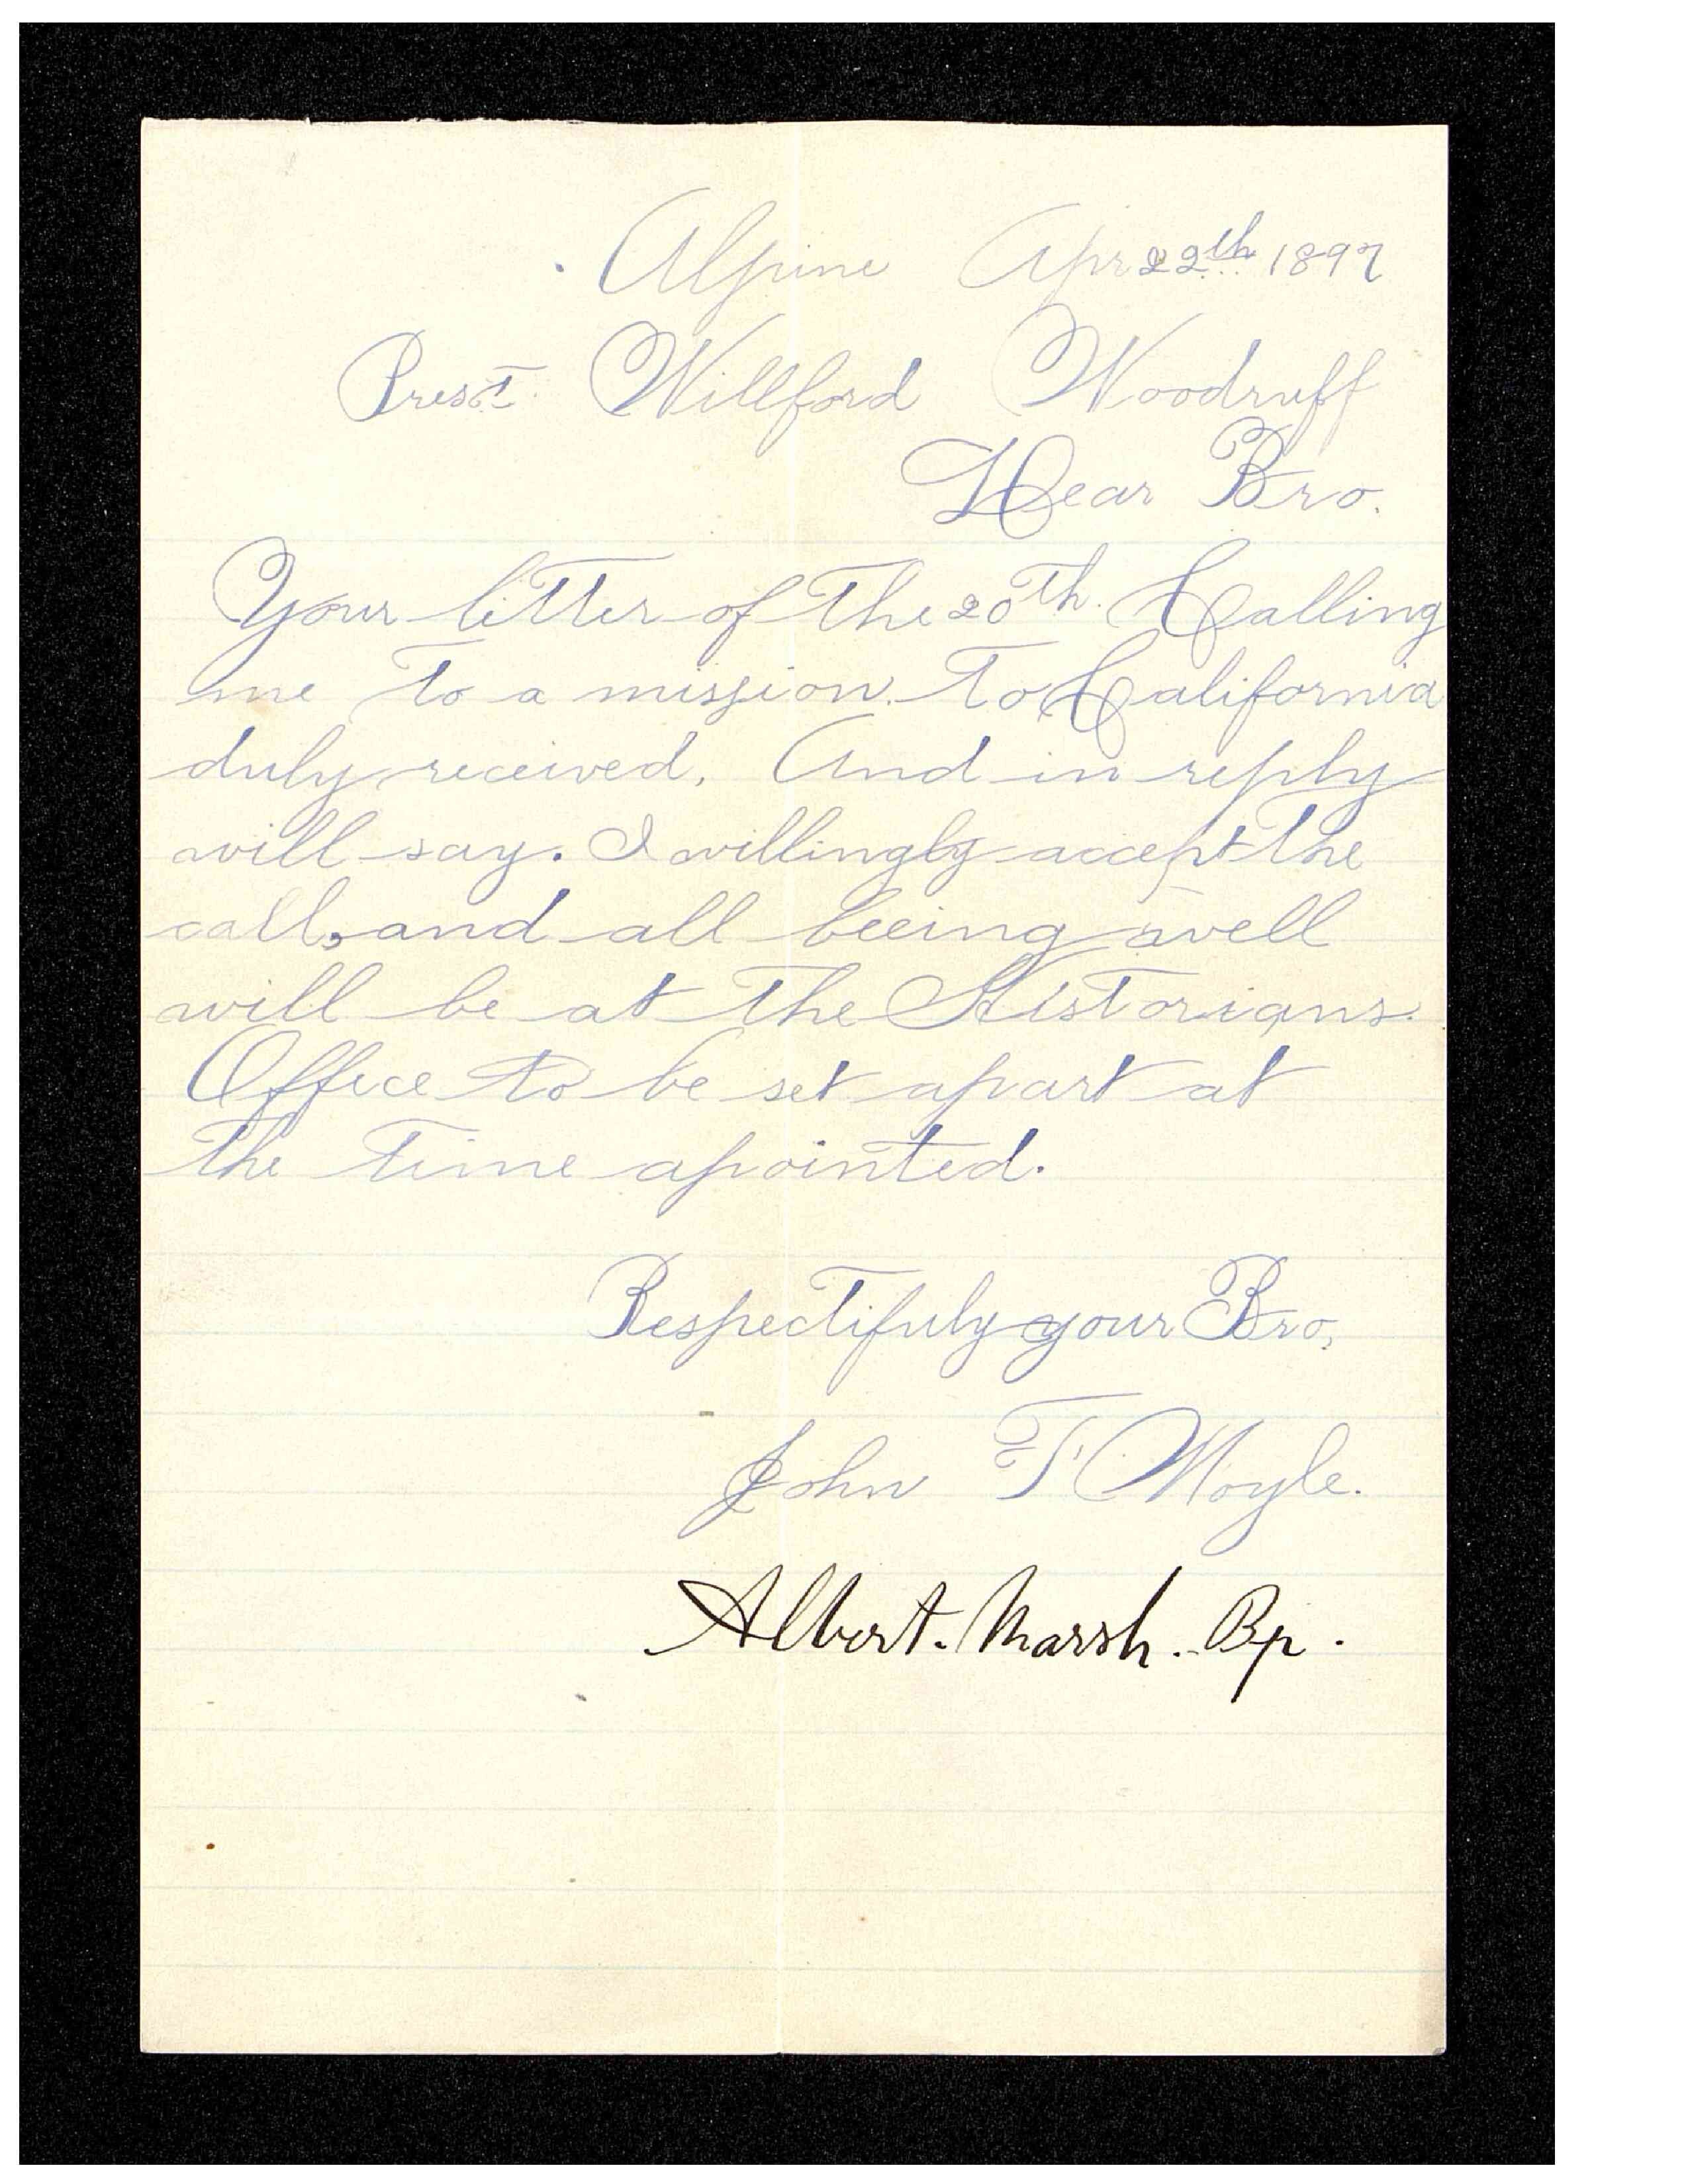 Alpine Apr 22th 1897
Prest. Willford Woodruff
Dear Bro.
Your letter of the 20th. Calling
me to a mission. to California
duly received. And in reply
will say. I willingly accept the
call, and all beeing well
will be at the Historians.
Office to be set apart at
the time apointed.
Respectifuly your Bro,
John T Moyle.
Albert. Marsh. Bp.